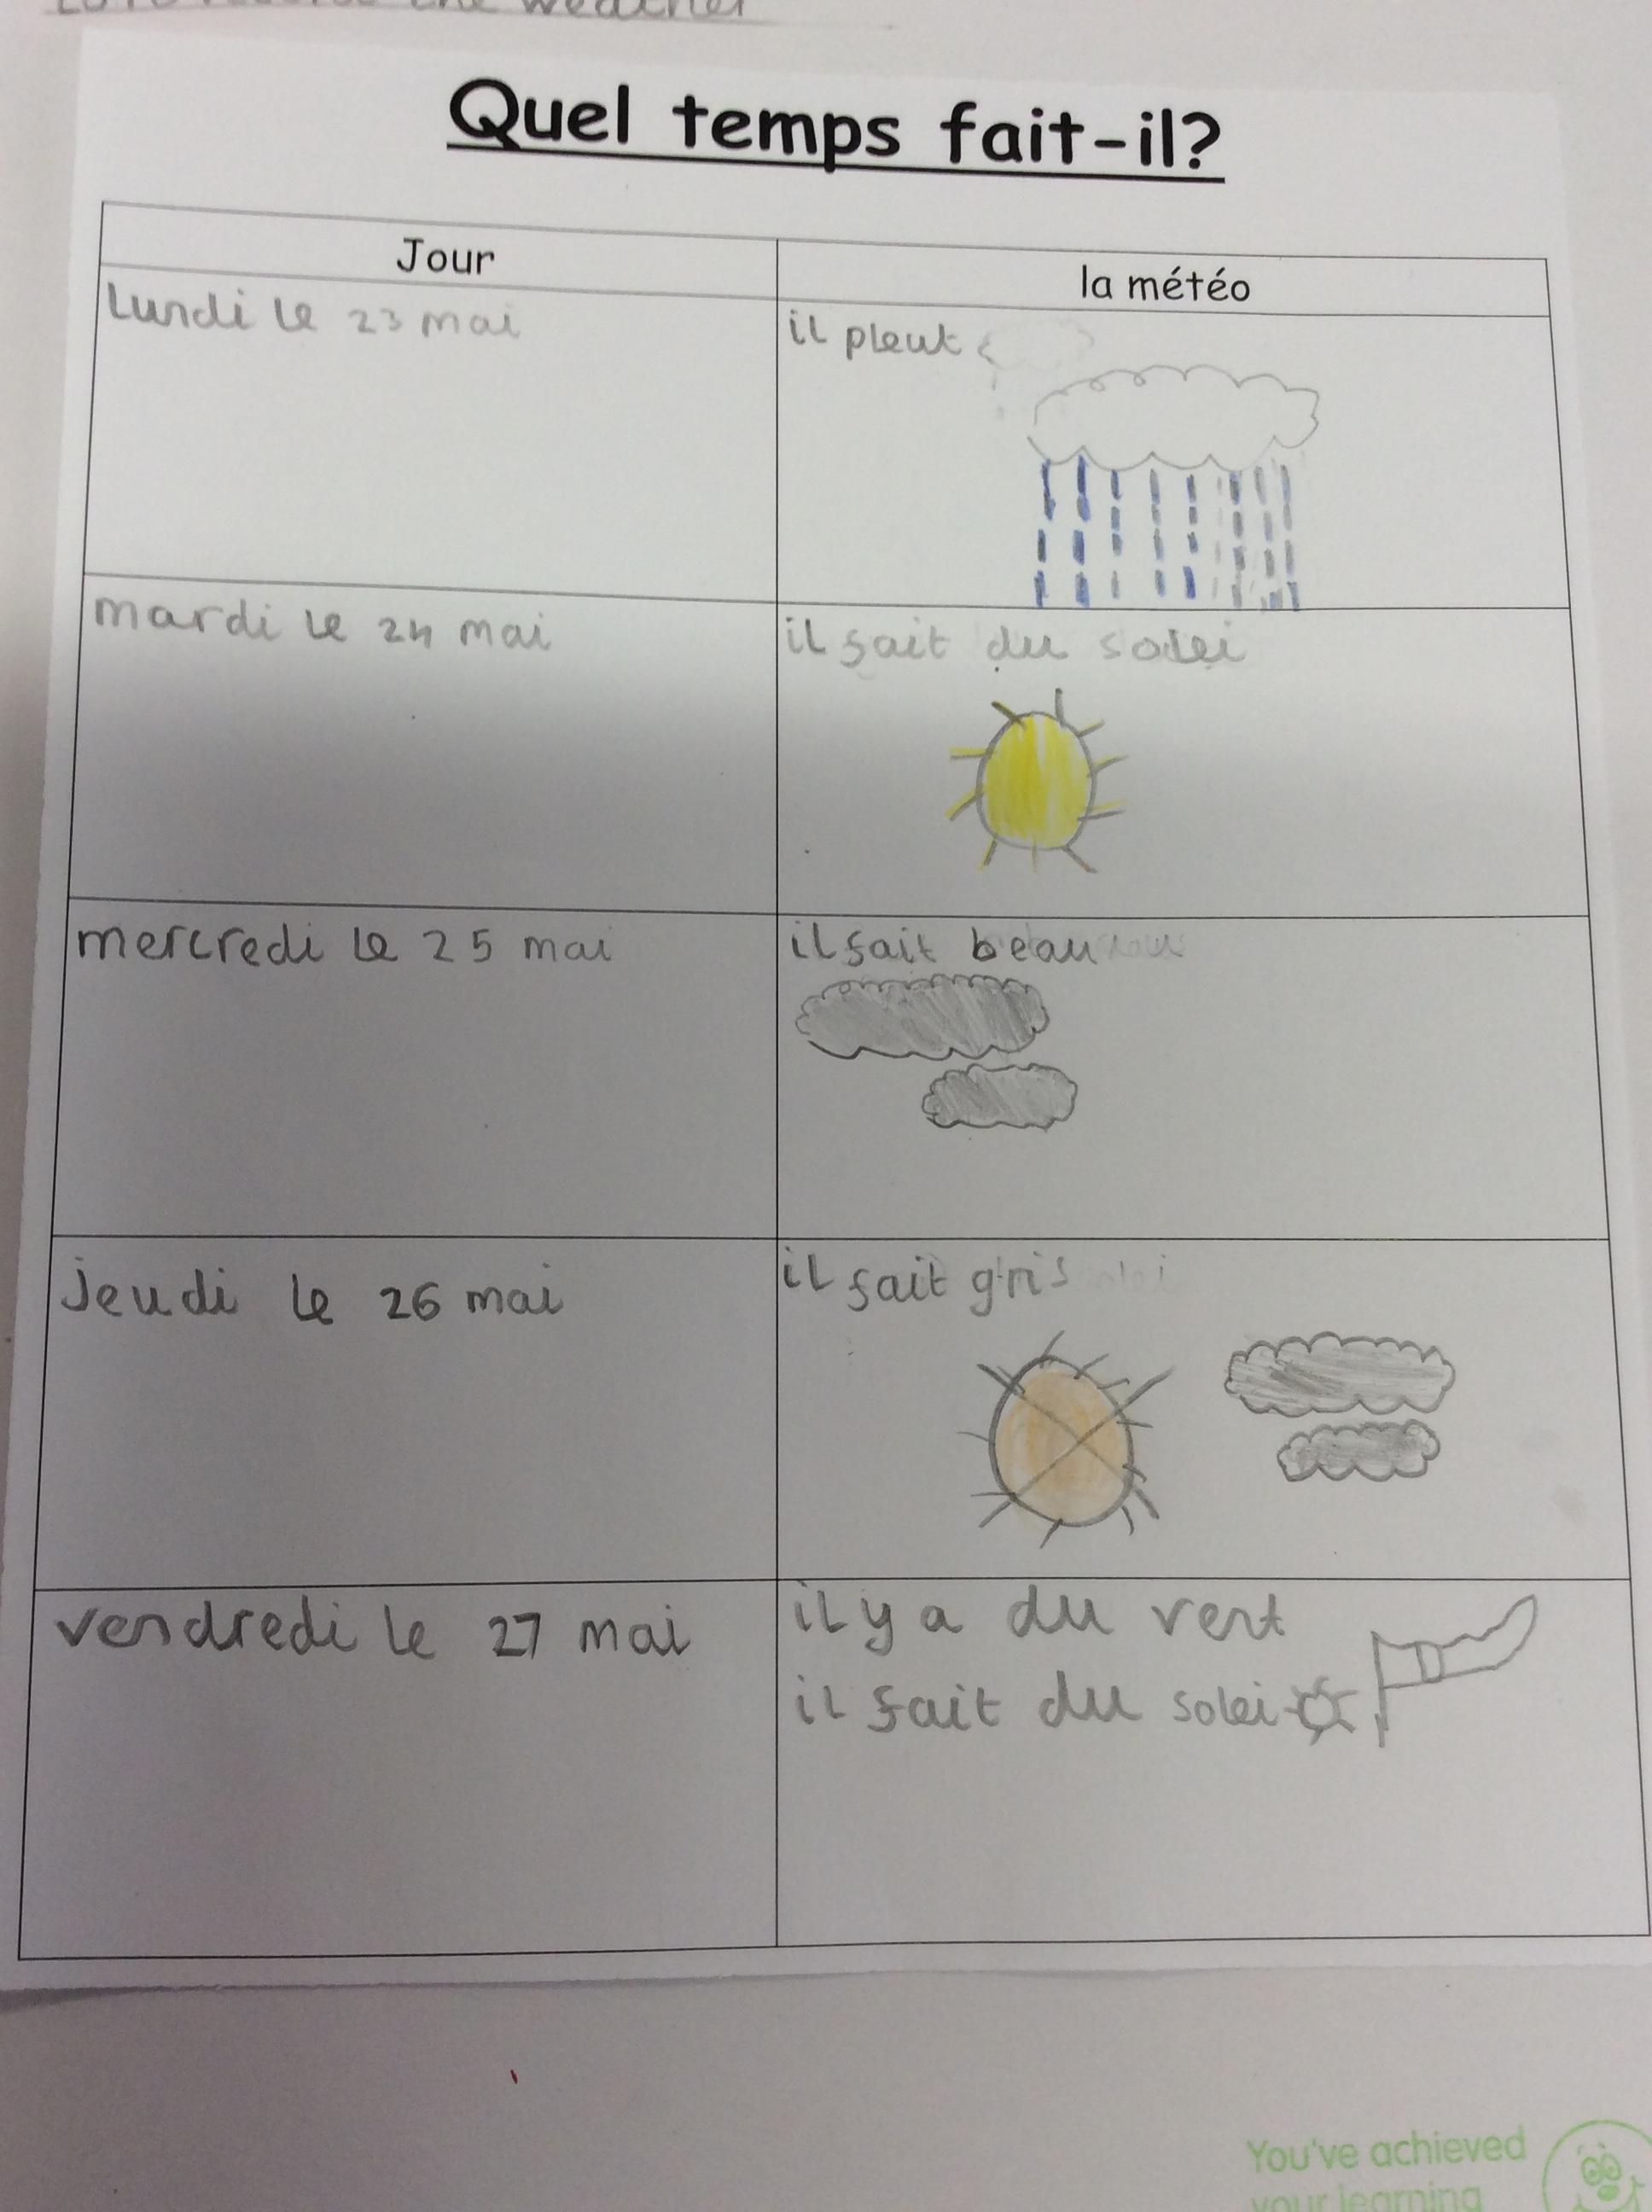 the weather
Quel temps fait-il?
Jour
la météo
Lundi le 23 mai
il pleut
mardi le 24 mai
il fait du solei
mercredi le 25 mai
il fait beau
jeudi le 26 mai
il fait gris
vendredi le 27 mai
il y a du vent
il fait du solei
You've achieved
your learning